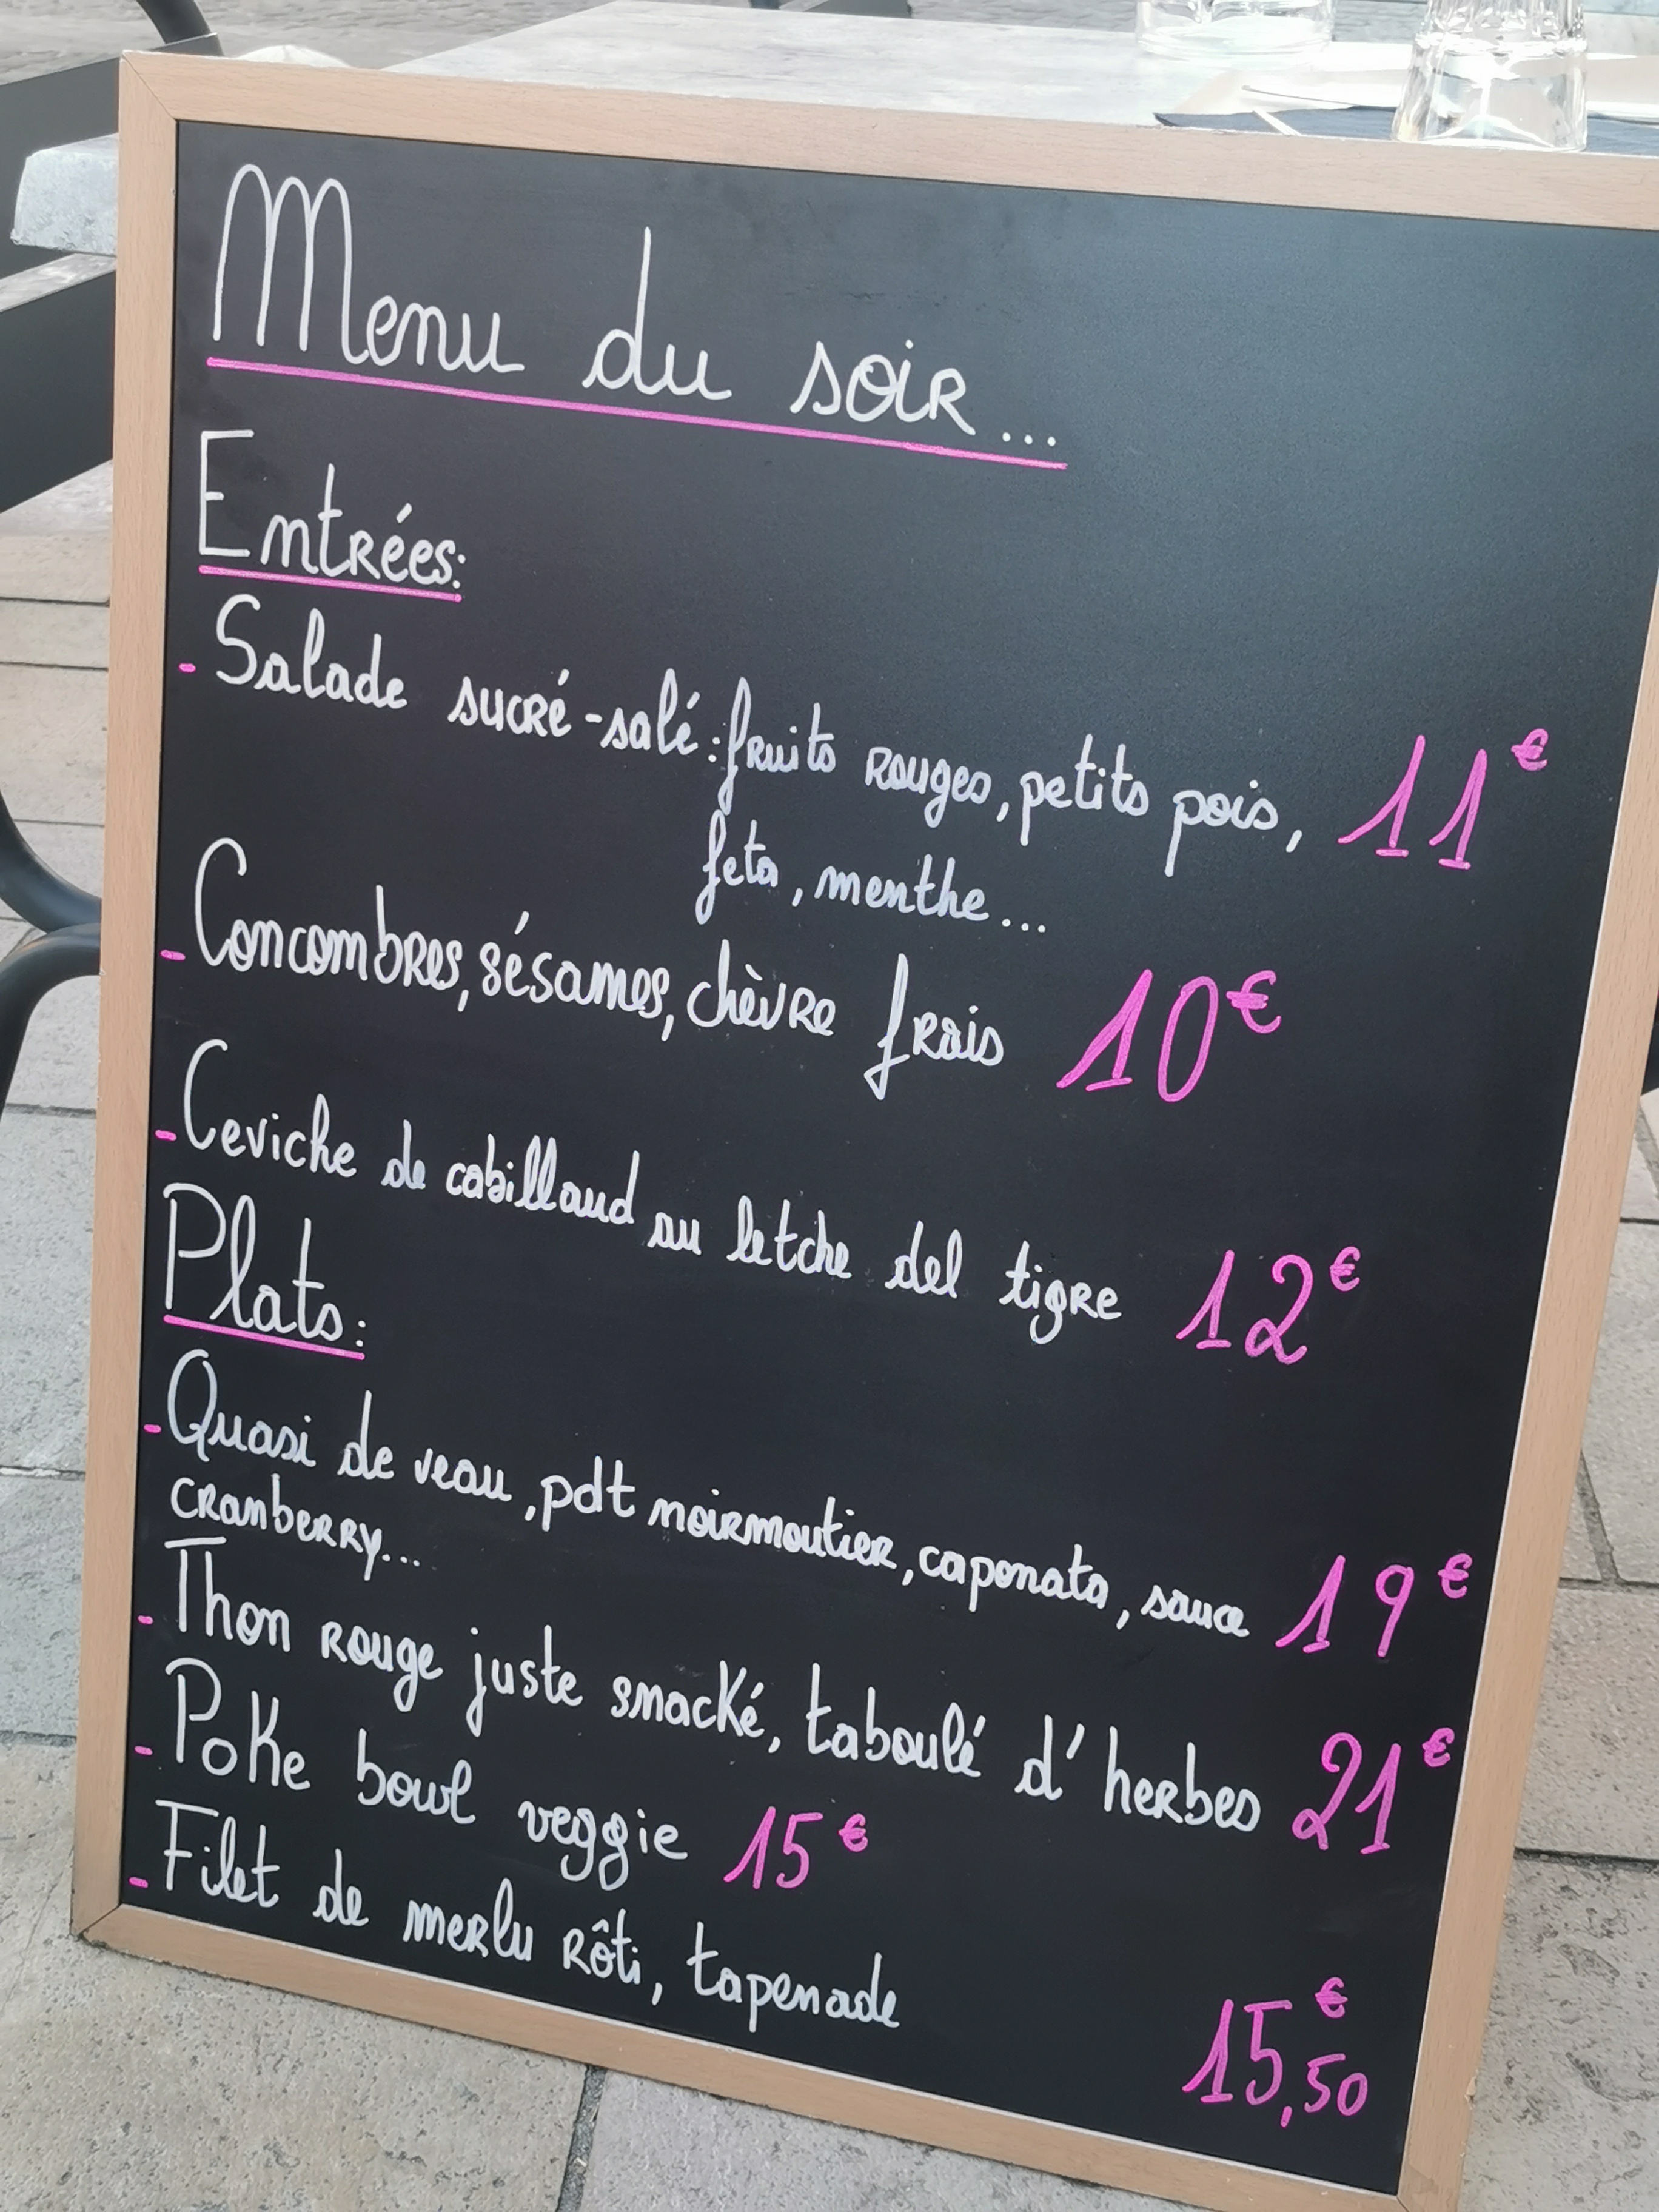 Menu du soir...
Entrées:
- Salade sucré-salé: fruits rouges, petits pois, 11€
feta, menthe...
- Concombres, sésames, chèvre frais 10€
- Ceviche de cabillaud au letche del tigre 12€
Plats:
- Quasi de veau, pdt noirmoutier, caponata, sauce 19€
cranberry...
- Thon rouge juste snacké, taboulé d'herbes 21€
- Poke bowl veggie 15€
- Filet de merlu rôti, tapenade 15,50€